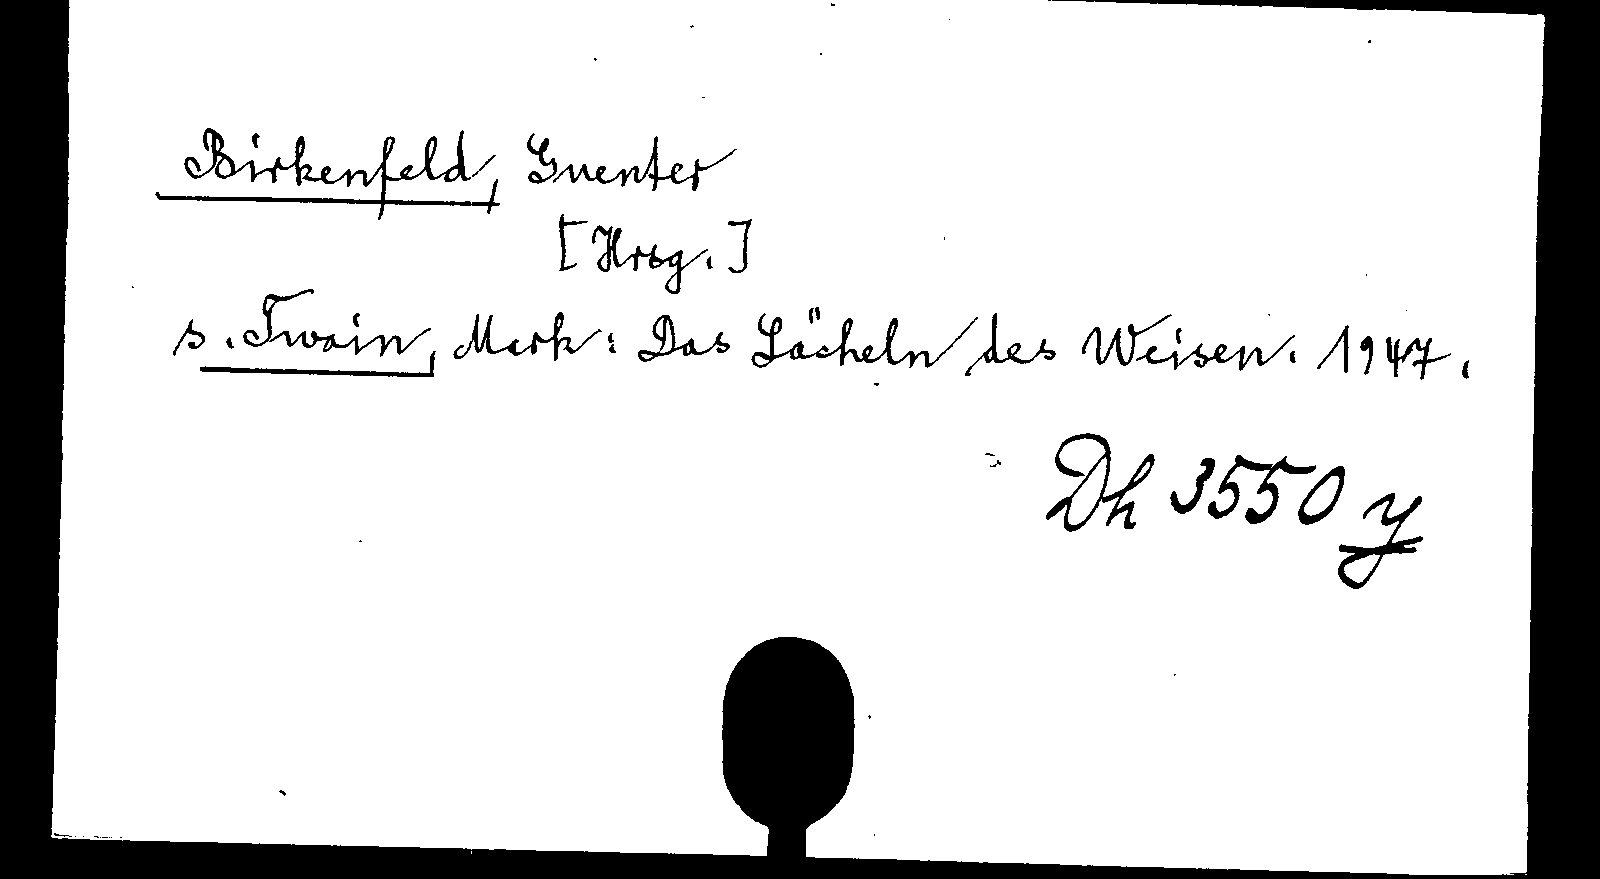 Birkenfeld, Guenter
[Hrsg.]
s. Twain, Mark: Das Lächeln des Weisen. 1947.
Dh 3550 y